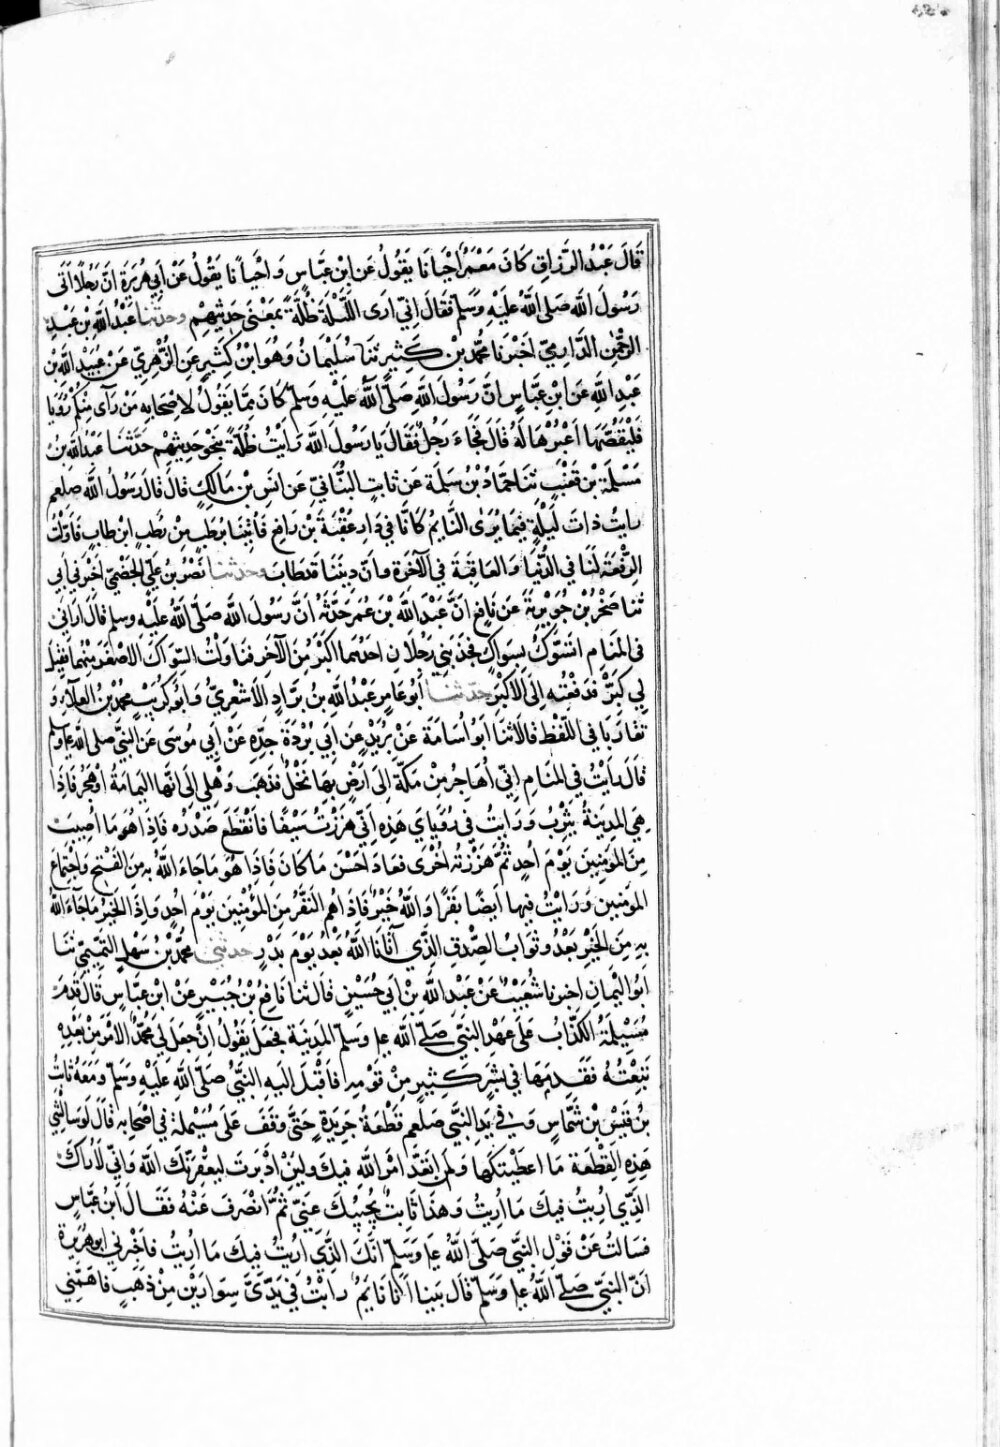 قَالَ عَبْدُ الرَّزَّاقِ كَانَ مَعْمَرٌ اَحْيَانًا يَقُولُ عَنِ ابْنِ عَبَّاسٍ وَ اَحْيَانًا يَقُولُ عَنْ اَبِي هُرَيْرَةَ اَنَّ رَجُلًا اَتَى
رَسُولَ اللَّهِ صَلَّى اللَّهُ عَلَيْهِ وَسَلَّمَ فَقَالَ اِنِّي اَرَى اللَّيْلَةَ ظُلَّةً بِمَعْنَى حَدِيثِهِمْ وحدثنا عَبْدُ اللَّهِ بْنُ عَبْدِ
الرَّحْمٰنِ الدَّارِمِيُّ اَخْبَرَنَا مُحَمَّدُ بْنُ كَثِيرٍ ثَنَا سُلَيْمَانُ وَهُوَ ابْنُ كَثِيرٍ عَنِ الزُّهْرِيِّ عَنْ عُبَيْدِ اللَّهِ بْنِ
عَبْدِ اللَّهِ عَنِ ابْنِ عَبَّاسٍ اَنَّ رَسُولَ اللَّهِ صَلَّى اللَّهُ عَلَيْهِ وَسَلَّمَ كَانَ مِمَّا يَقُولُ لِاَصْحَابِهِ مَنْ رَآى مِنْكُمْ رُؤْيَا
فَلْيَقُصَّهَا اَعْبُرْهَا لَهُ قَالَ فَجَاءَ رَجُلٌ فَقَالَ يَا رَسُولَ اللَّهِ رَاَيْتُ ظُلَّةً بِنَحْوِ حَدِيثِهِمْ حَدَّثَنَا عَبْدُ اللَّهِ بْنُ
مَسْلَمَةَ بْنِ قَعْنَبٍ ثَنَا حَمَّادُ بْنُ سَلَمَةَ عَنْ ثَابِتٍ الْبُنَانِيِّ عَنْ اَنَسِ بْنِ مَالِكٍ قَالَ قَالَ رَسُولُ اللَّهِ صلعم
رَايتُ ذَاتَ لَيْلَةٍ فِيمَا يَرَى النَّايِمُ كَاَنَّا فِي دَارِ عُقْبَةَ بْنِ رَافِعٍ فَاُتِينَا بِرُطَبٍ مِنْ رُطَبِ ابْنِ طَابٍ فَاَوَّلْتُ
الرِّفْعَةَ لَنَا فِي الدُّنْيَا وَالْعَاقِبَةَ فِي الْآخِرَةِ وَاَنَّ دِينَنَا قَدْ طَابَ وحدثنا نَصْرُ بْنُ عَلِيٍّ الْجَهْضَمِيُّ اَخْبَرَنِي اَبِي
ثَنَا صَخْرُ بْنُ جُوَيْرِيَةَ عَنْ نَافِعٍ اَنَّ عَبْدَ اللَّهِ بْنَ عُمَرَ حَدَّثَهُ اَنَّ رَسُولَ اللَّهِ صَلَّى اللَّهُ عَلَيْهِ وسلم قَالَ اَرَانِي
فِي الْمَنَامِ اَتَسَوَّكُ بِسِوَاكٍ فَجَذَبَنِي رَجُلَانِ اَحَدُهُمَا اَكْبَرُ مِنَ الْآخَرِ فَنَاوَلْتُ السِّوَاكَ الْاَصْغَرَ مِنْهُمَا فَقِيلَ
لِي كَبِّرْ فَدَفَعْتُهُ اِلَى الْاَكْبَرِ حدثنا اَبُو عَامِرٍ عَبْدُ اللَّهِ بْنُ بَرَّادٍ الْاَشْعَرِيُّ وَاَبُو كُرَيْبٍ مُحَمَّدُ بْنُ الْعَلَاءِ وَ
تَقَارَبَا فِي اللَّفْظِ قَالَا ثَنَا اَبُو اُسَامَةَ عَنْ بُرَيْدٍ عَنْ اَبِي بُرْدَةَ جَدِّهِ عَنْ اَبِي مُوسَى عَنِ النَّبِيِّ صلى الله عليه وسلم
قَالَ رَاَيْتُ فِي الْمَنَامِ اِنِّي اُهَاجِرُ مِنْ مَكَّةَ اِلَى اَرْضٍ بِهَا نَخْلٌ فَذَهَبَ وَهْلِي اِلَى اَنَّهَا الْيَمَامَةُ اَوْ هَجَرُ فَاِذَا
هِيَ الْمَدِينَةُ يَثْرِبُ وَرَاَيْتُ فِي رُؤْيَايَ هَذِهِ اَنِّي هَزَزْتُ سَيْفًا فَانْقَطَعَ صَدْرُهُ فَاِذَا هُوَ مَا اُصِيبَ
مِنَ الْمُؤْمِنِينَ يَوْمَ اُحُدٍ ثُمَّ هَزَزْتُهُ اُخْرَى فَعَادَ اَحْسَنَ مَا كَانَ فَاِذَا هُوَ مَا جَاءَ اللَّهُ بِهِ مِنَ الْفَتْحِ وَاجْتِمَاعِ
الْمُؤْمِنِينَ وَرَاَيْتُ فِيهَا اَيْضًا بَقَرًا وَاللَّهُ خَيْرٌ فَاِذَا هُمُ النَّفَرُ مِنَ الْمُؤْمِنِينَ يَوْمَ اُحُدٍ وَاِذَا الْخَيْرُ مَا جَاءَ اللَّهُ
بِهِ مِنَ الْخَيْرِ بَعْدُ وَثَوَابُ الصِّدْقِ الَّذِي آتَانَا اللَّهُ بَعْدُ يَوْمَ بَدْرٍ حدثني مُحَمَّدُ بْنُ سَهْلٍ التَّمِيمِيُّ ثَنَا
اَبُو الْيَمَانِ اخبرنا شُعَيْبٌ عَنْ عَبْدِ اللَّهِ بْنِ اَبِي حُسَيْنٍ قَالَ ثَنَا نَافِعُ بْنُ جُبَيْرٍ عَنِ ابْنِ عَبَّاسٍ قَالَ قَدِمَ
مُسَيْلَمَةُ الْكَذَّابُ عَلَى عَهْدِ النَّبِيِّ صَلَّى اللَّهُ عليه وَسَلَّمَ الْمَدِينَةَ فَجَعَلَ يَقُولُ اِنْ جَعَلَ لِي مُحَمَّدٌ الْاَمْرَ مِنْ بَعْدِهِ
تَبِعْتُهُ فَقَدِمَهَا فِي بَشَرٍ كَثِيرٍ مِنْ قَوْمِهِ فَاَقْبَلَ اِلَيْهِ النَّبِيُّ صَلَّى اللَّهِ عَلَيْهِ وَسَلَّمَ وَمَعَهُ ثَابِتُ
بْنُ قَيْسِ بْنِ شَمَّاسٍ وَفِي يَدِ النَّبِيِّ صلعم قِطْعَةُ جَرِيدَةٍ حَتَّى وَقَفَ عَلَى مُسَيْلَمَةَ فِي اَصْحَابِهِ قَالَ لَوْ سَاَلْتَنِي
هَذِهِ الْقِطْعَةَ مَا اَعْطَيْتُكَهَا وَلَنْ اَتَعَدَّ اَمْرَ اللَّهِ فِيكَ وَلَئِنْ اَدْبَرْتَ لَيَعْقِرَنَّكَ اللَّهُ وَاِنِّي لَاُرَاكَ
الَّذِي اُرِيتُ فِيكَ مَا اُرِيتُ وَهَذَا ثَابِتٌ يُجِيبُكَ عَنِّي ثُمَّ انْصَرَفَ عَنْهُ فَقَالَ ابْنُ عَبَّاسٍ
فَسَاَلْتُ عَنْ قَوْلِ النَّبِيِّ صَلَّى اللَّهُ عليه وَسَلَّمَ اِنَّكَ الَّذِي اُرِيتُ فِيكَ مَا اُرِيتُ فَاَخْبَرَنِي اَبُو هُرَيْرَةَ
اَنَّ النَّبِيَّ صَلَّى اللَّهُ عليه وَسَلَّمَ قَالَ بَيْنَا اَنَا نَايِمٌ رَاَيْتُ فِي يَدَيَّ سِوَارَيْنِ مِنْ ذَهَبٍ فَاَهَمَّنِي